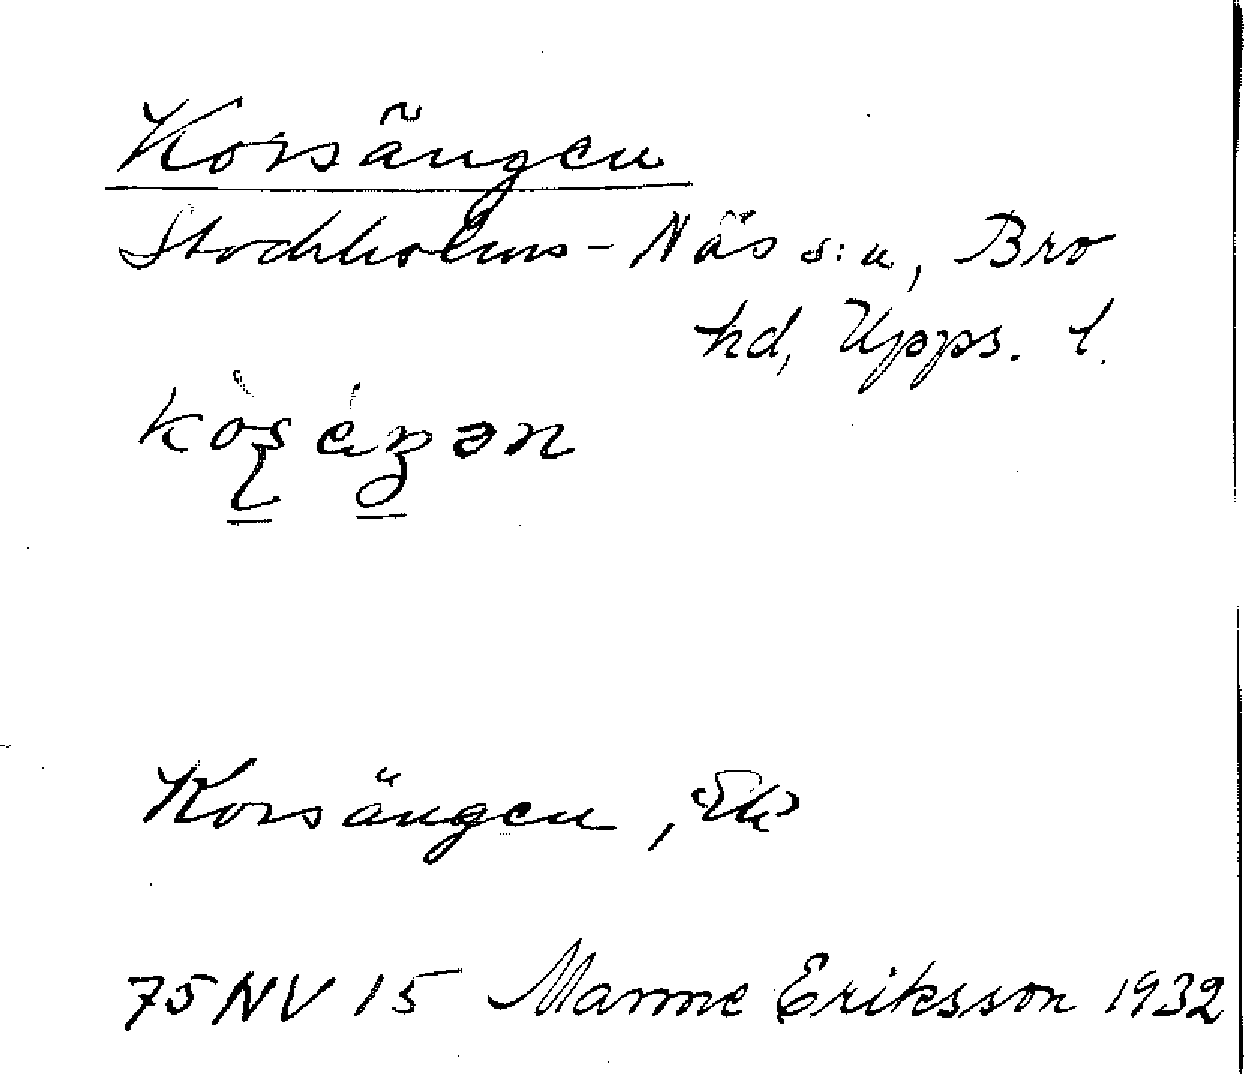 Korsängen
Stockholms-Näs s:n, Bro
hd, Upps. l.
Korsängen, Ek
75 NV 15 Manne Eriksson 1932